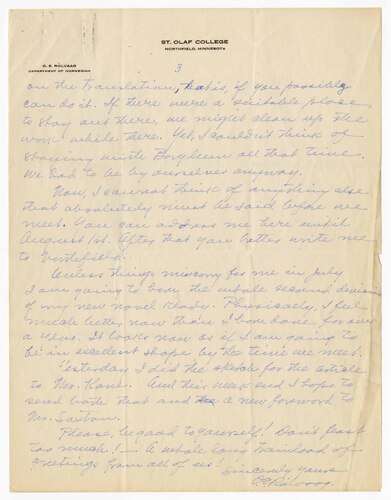 ST. OLAF COLLEGE
NORTHFIELD, MINNESOTA
O. E. RÖLVAAG
DEPARTMENT OF NORWEGIAN
3
on the translation, that is, if you possibly
can do it. If there were a suitable place
to stay out there, we might clean up the
work while there. Yet, I couldn't think of
staying with Borglum all that time.
We had to be by ourselves anyway.
Now, I can not think of anything else
that absolutely must be said before we
meet. You can address me here until
August 1st. After that you better write me
to
Unless things miscarry for me in July
I am going to have the whole second division
of my new novel ready. Physically, I feel
much better now than I have done for over
a year. It looks now as if I am going to
be in excellent shape by the time we meet.
Yesterday I did the sketch for the article
to Mr. Kane. And this week end I hope to
send both that and a new foreword to
Mr. Saxton.
Please, be good to yourself! Don't feast
too much! — A whole long trainload of
greetings from all of us!
Sincerely yours
O E Rölvaag.